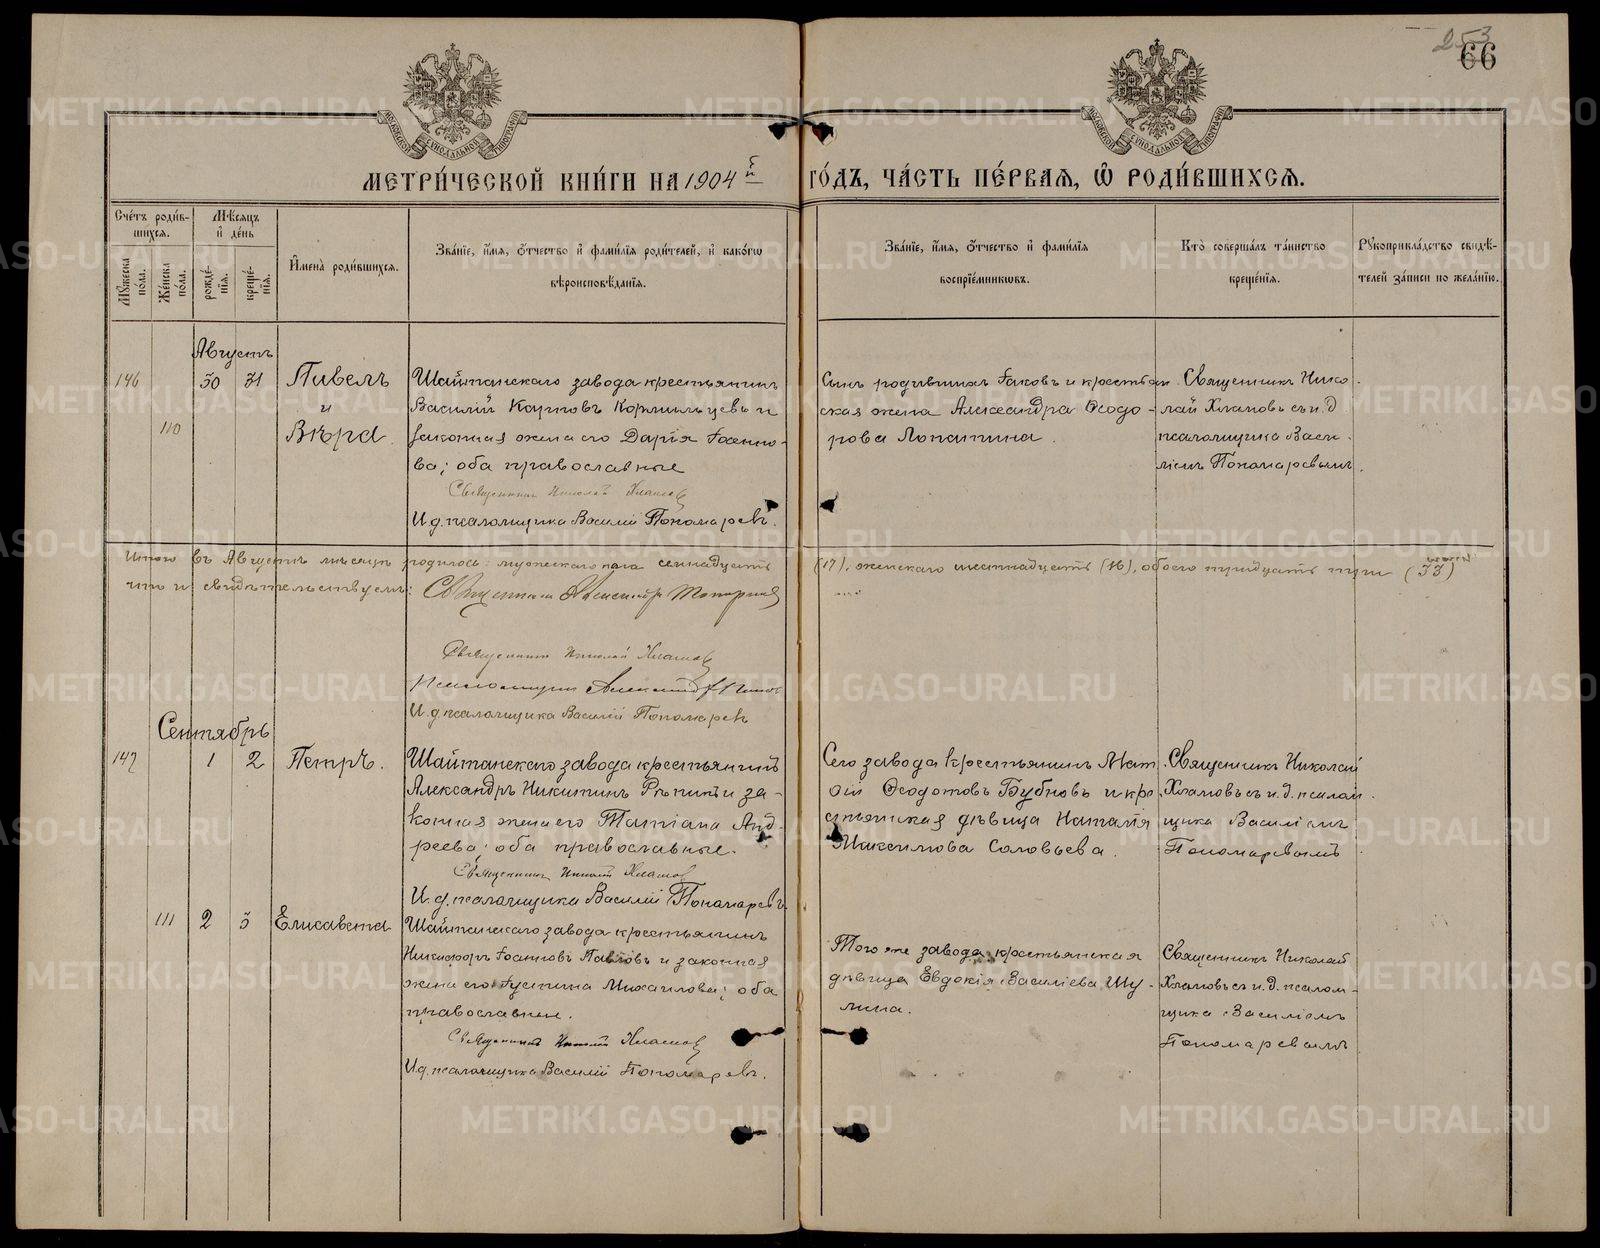 253
66
МЕТРИ́ЧЕСКОЙ КНИ́ГИ НА 1904 й ГО́ДЪ, ЧА́СТЬ ПЕ́РВАЯ, Ѿ РОДИ́ВШИХСЯ.
Сче́тъ роди́вшихся.
Му́жеска по́ла.
Же́нска по́ла.
Мѣ́сяцъ и де́нь
рожде́нїя.
креще́нїя.
И҆мена̀ роди́вшихся.
Зва́нїе, и҆́мя, ѻ҆́тчество и҆ фами́лїя роди́телей, и҆ како́гѡ вѣроисповѣ́данїя.
Зва́нїе, и҆́мя, ѻ҆́тчество и҆ фами́лїя воспрїе́мникѡвъ.
Кто̀ соверша́лъ та́инство креще́нїя.
Рꙋкоприкла́дство свидѣ́телей за́писи по жела́нїю.
Августъ
146
110
30 31
Павелъ
и
Вѣра.
Шайтанскаго завода крестьянинъ
Василій Карповъ Кормильцевъ и
законная жена его Дарія Іоанно-
ва; оба православные
Священникъ Николай Хламов
И.д. псаломщика Василій Пономаревъ.
Сынъ родившихъ Іаковъ и крестьян
ская жена Александра Ѳеодо-
рова Лопатина.
Священникъ Нико-
лай Хламовъ съ и.д
псаломщика Васи-
ліемъ Пономаревымъ.
Итого въ Августѣ мѣсяцѣ родилось: мужескаго пола семнадцать (17), женскаго шестнадцать (16), обоего тридцать три (33)
что и свидѣтельствуемъ: Священникъ Александр
Священникъ Николай Хламов
Псаломщикъ Александр
И.д. псаломщика Василій Пономаревъ
Сентябрь
147
1 2
Петръ.
Шайтанскаго завода крестьянинъ
Александръ Никитинъ Рѣпинъ и за-
конная жена его Татіана Анд-
реева; оба православные.
Священникъ Николай Хламов
И.д. псаломщика Василій Пономаревъ.
Сего завода крестьянинъ Мат
ѳій Ѳеодотовъ Бубновъ и кре
стьянская дѣвица Наталія
Максимова Соловьева.
Священникъ Николай
Хламовъ съ и.д. псалом
щика Василіемъ
Пономаревымъ
111
2 3
Елисавета
Шайтанскаго завода крестьянинъ
Никифоръ Іоанновъ Павловъ и законная
жена его Іустина Михаилова; оба
православные.
Священникъ Николай Хламов
И.д. псаломщика Василій Пономаревъ.
Того же завода крестьянская
дѣвица Евдокія Василіева Шу-
лина.
Священникъ Николай
Хламовъ съ и.д. псалом-
щика Василіемъ
Пономаревымъ
METRIKI.GASO-URAL.RU